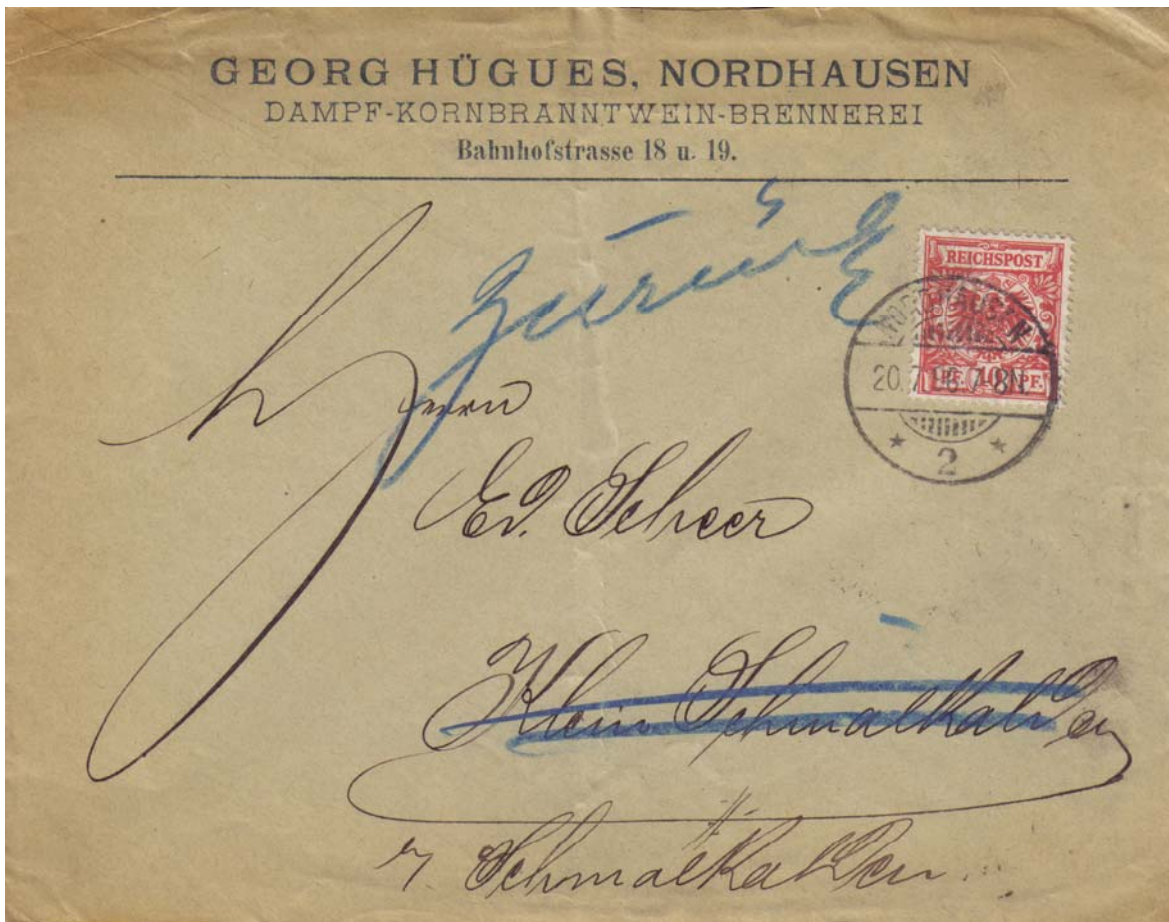 GEORG HÜGUES, NORDHAUSEN
DAMPF-KORNBRANNTWEIN-BRENNEREI
Bahnhofstrasse 18 u. 19.
zurück
REICHSPOST
NORDHAUSEN
20.7.96.7-8N.
PF. 10 PF.
* 2 *
Herrn
Ed. Scheer
Klein Schmalkalden
Schmalkalden